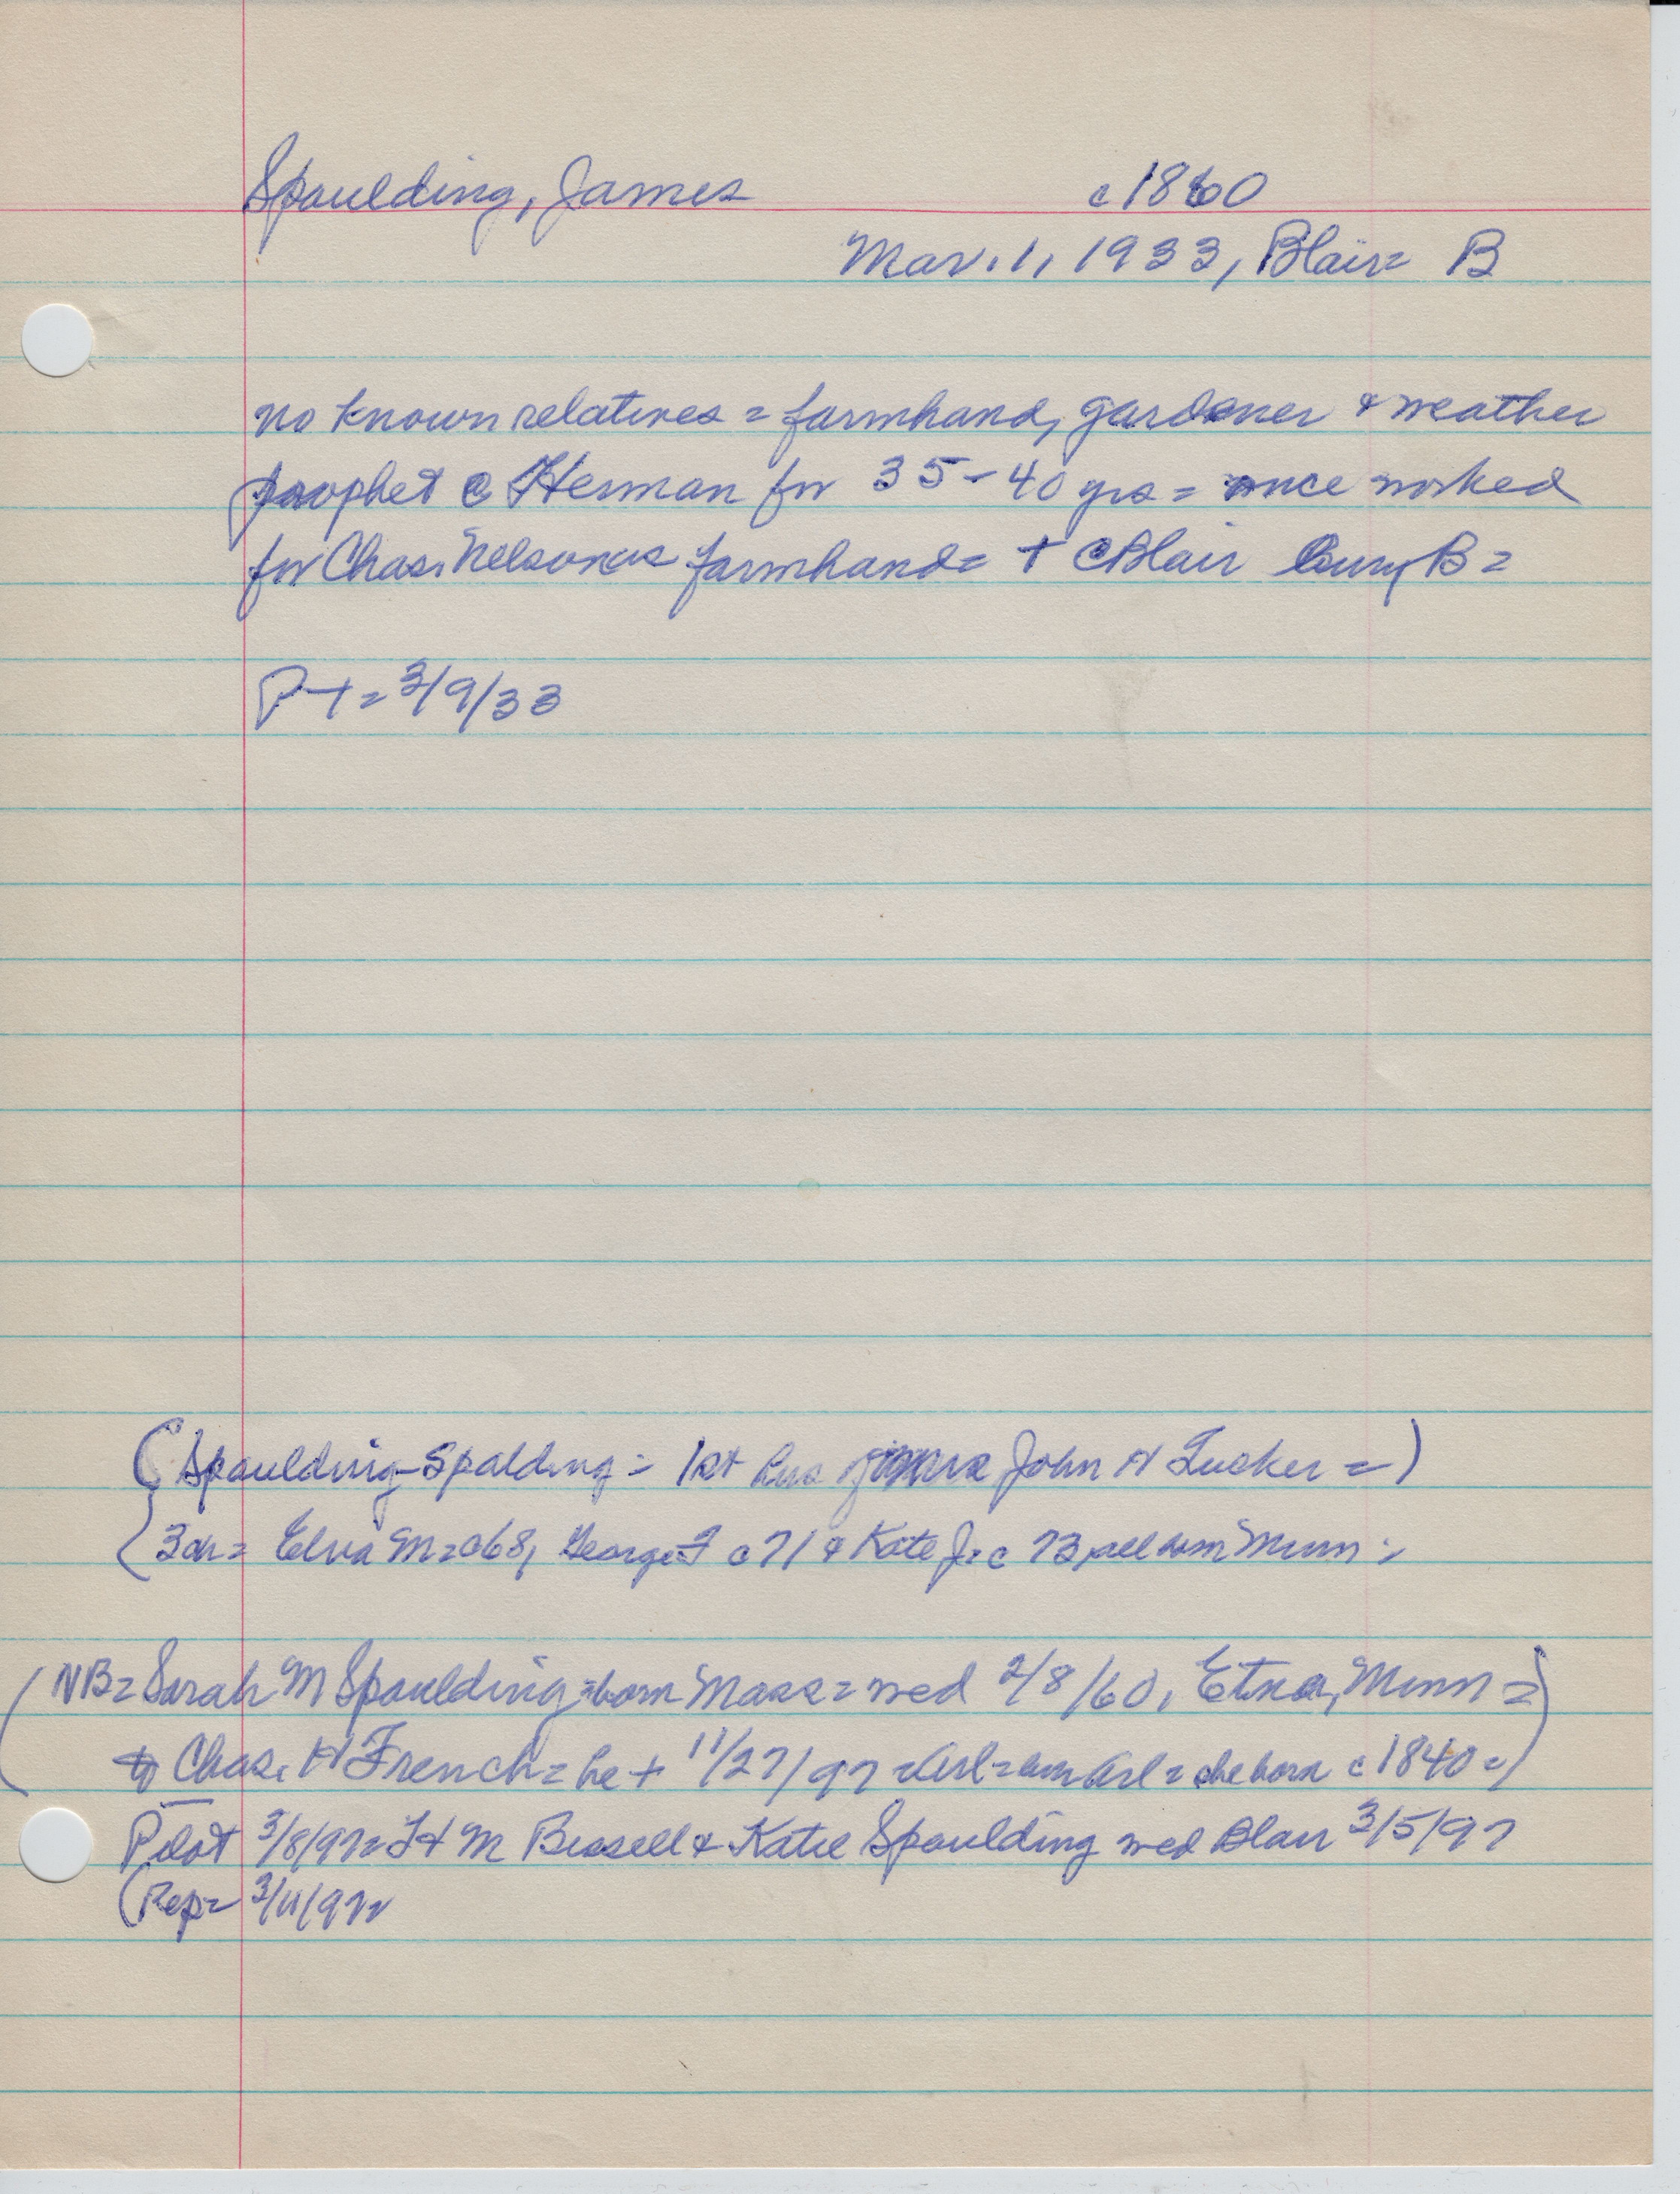 Spaulding, James c1860
Mar. 1, 1933, Blair = B
no known relatives = farmhand, gardener & weather
prophet @ Herman for 35-40 yrs = once worked
for Chas. Nelson as farmhand = + @ Blair bury B =
P-T = 3/9/33
(Spaulding-Spalding = 1st hus John H Tucker =)
3 ch = Elva M = c68, George F c71 & Kate J = c73, all born Minn =
(NB = Sarah M Spaulding = born Mass = wed 2/8/60, Etna, Minn =
to Chas. H French = he + 11/27/97 = Arl = Arl = she born c1840 =)
Pilot 3/8/97 = M Bissell & Katie Spaulding wed Blair 3/5/97
(Rep = 3/11/97 =